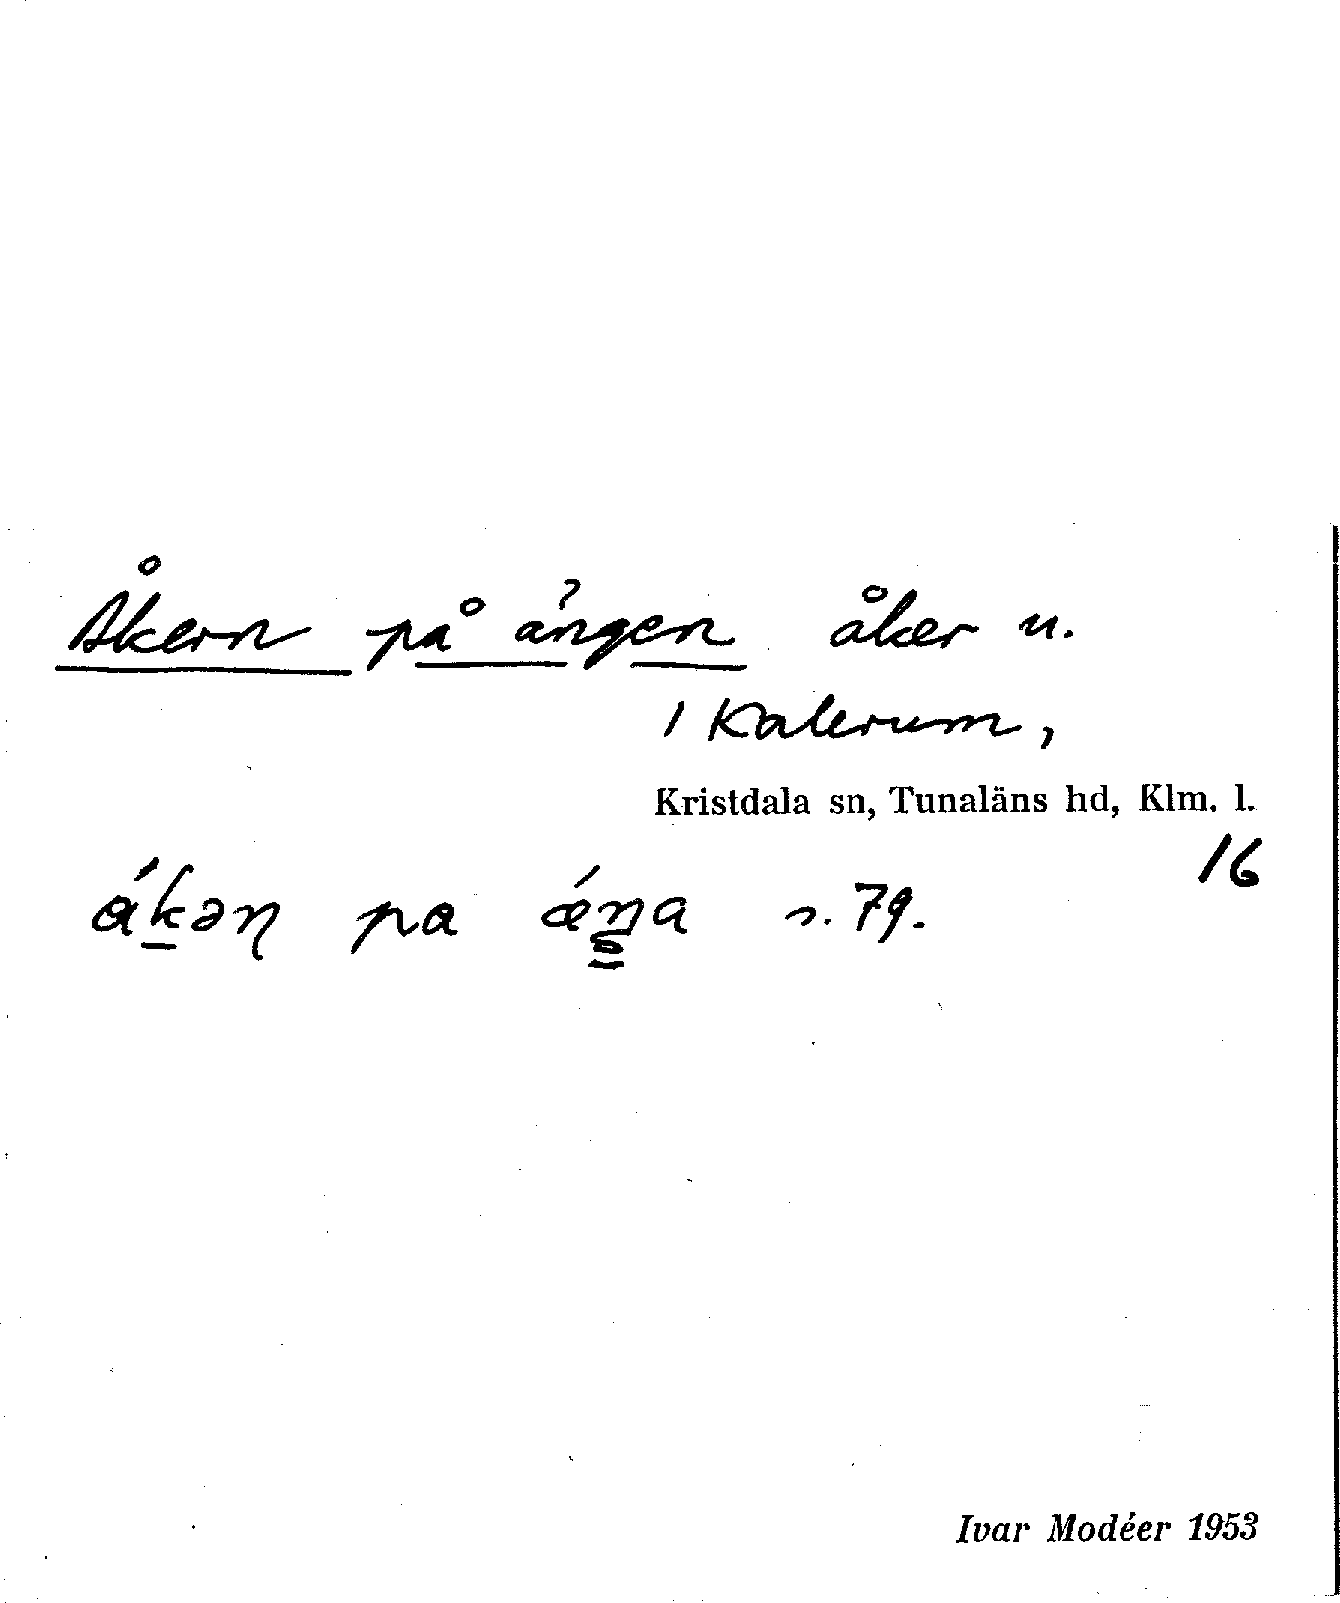 Åkern på ängen åker u.
1 Kalerum,
Kristdala sn, Tunaläns hd, Klm. l.
16
ákəη pa ǽŋa s. 79.
Ivar Modéer 1953